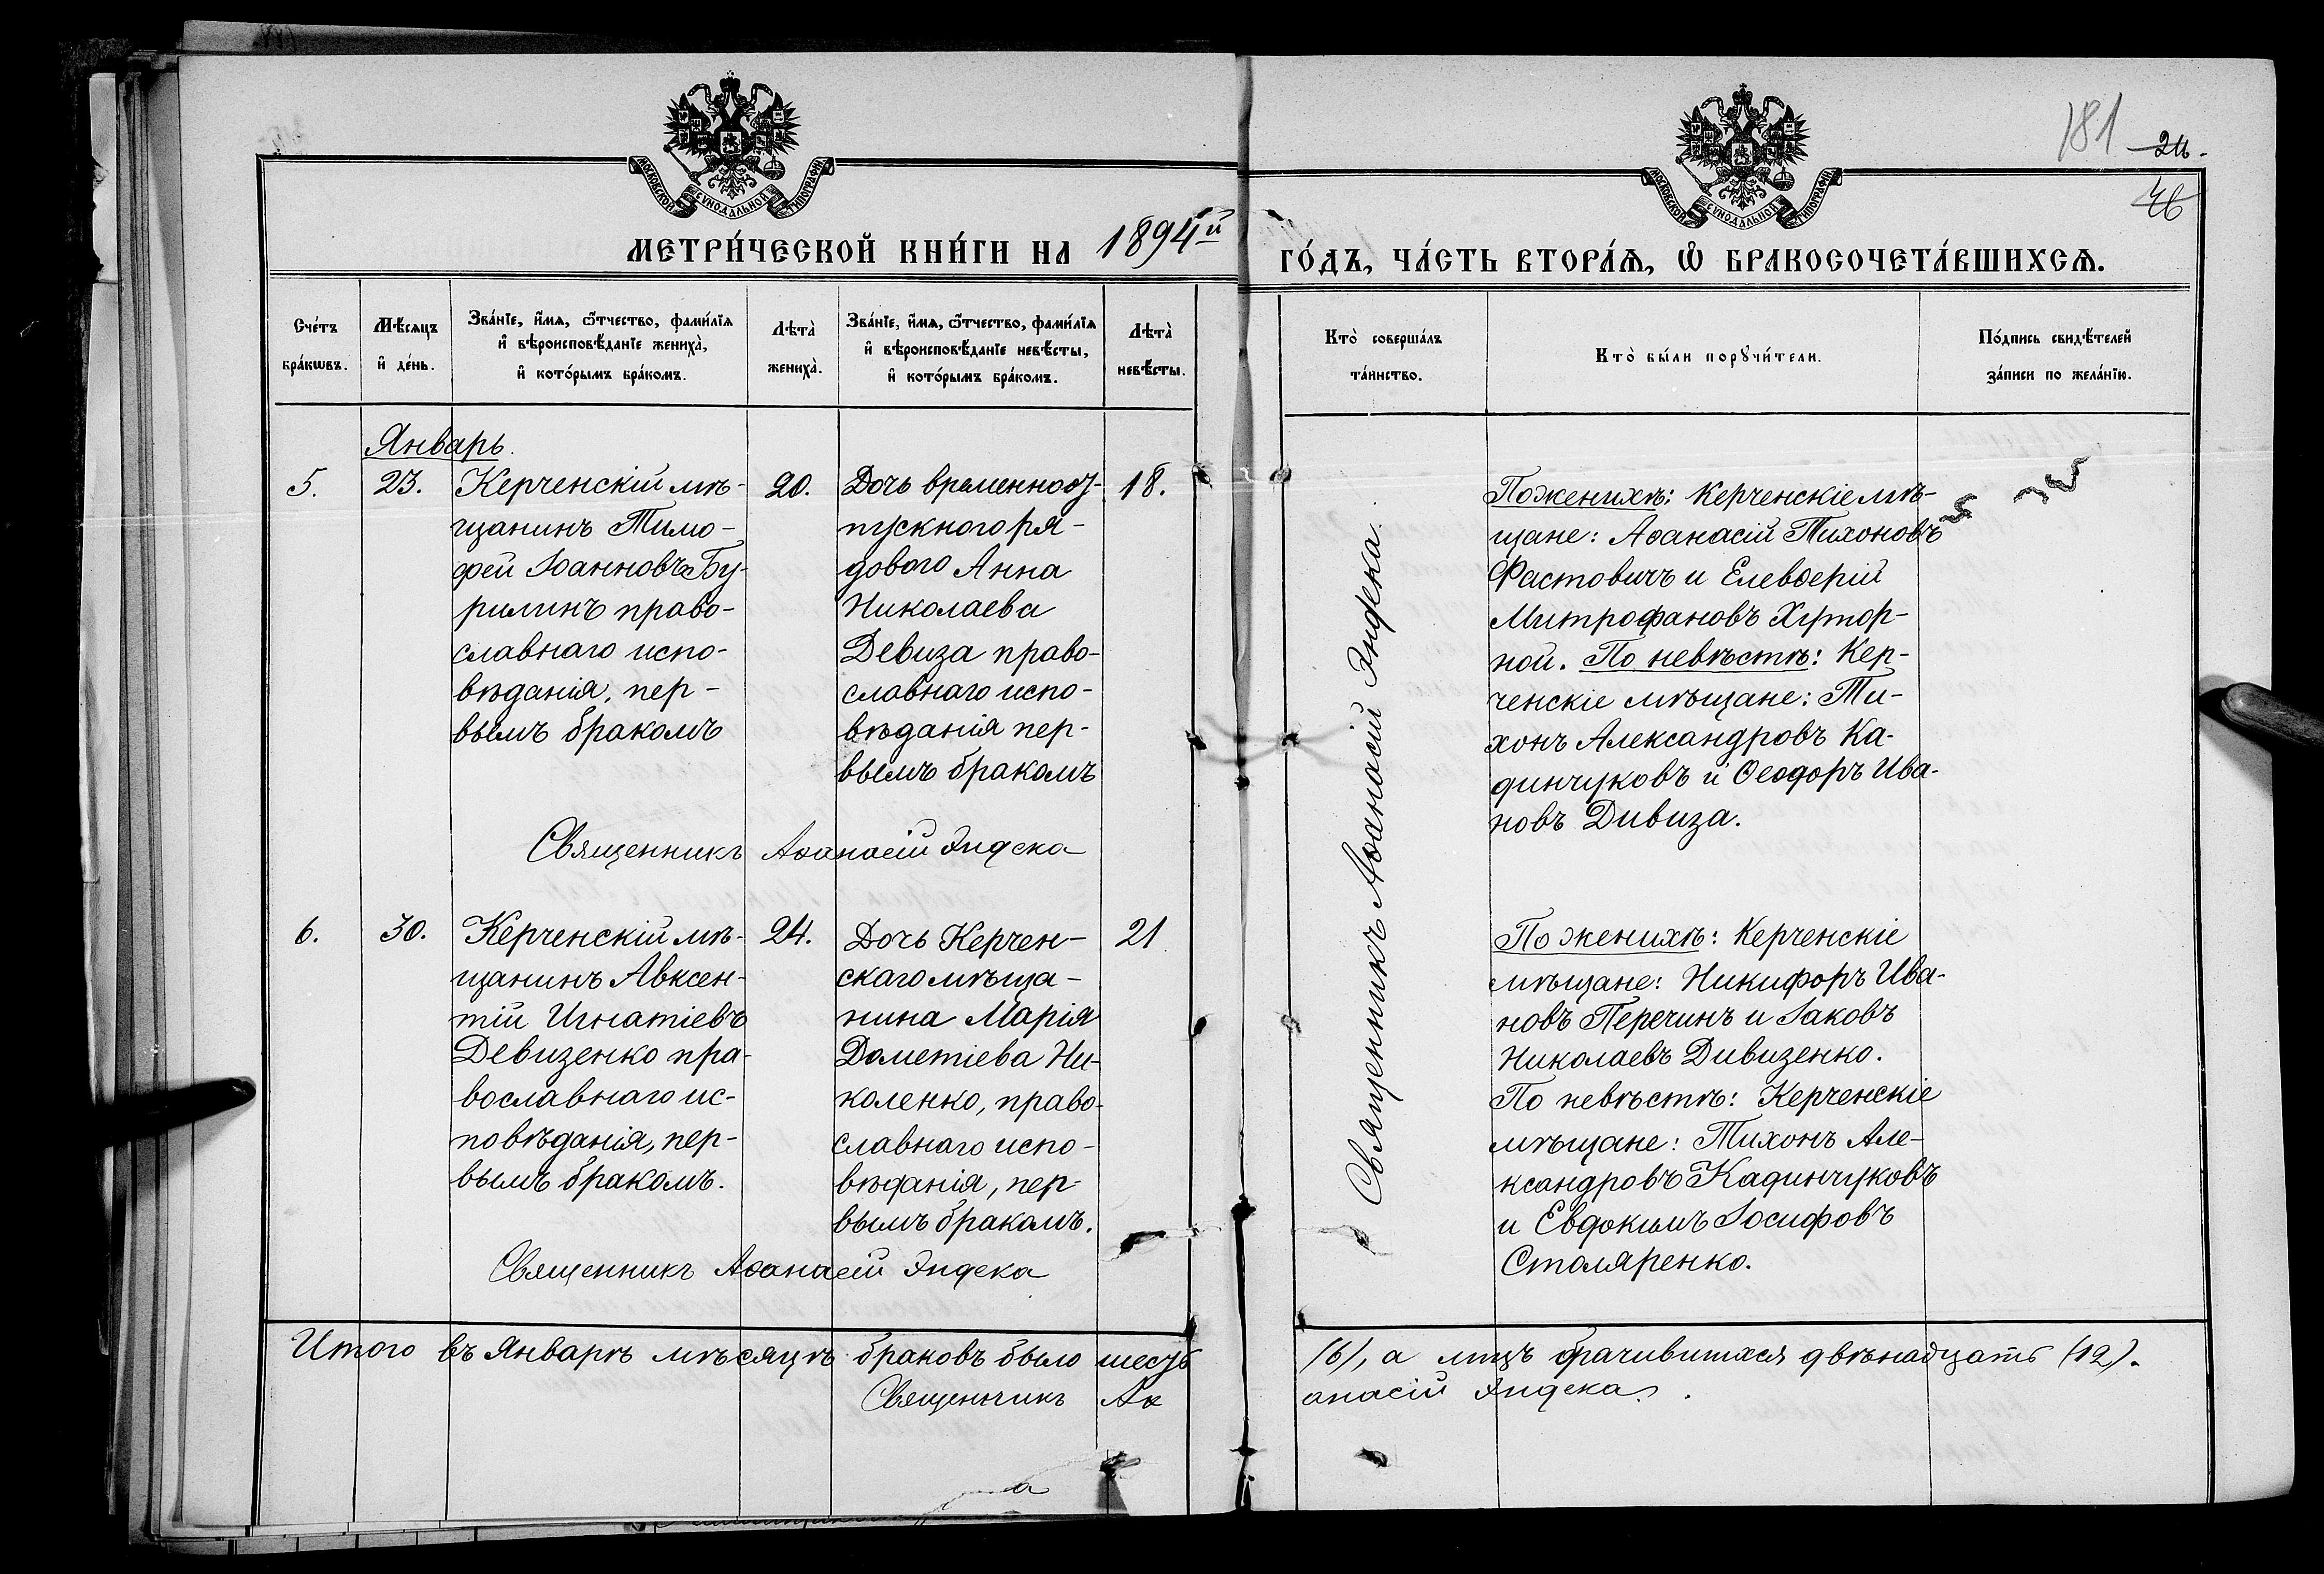 181 24.
46
МОСКОВСКОЙ СѴНОДАЛЬНОЙ ТИПОГРАФІИ
МОСКОВСКОЙ СѴНОДАЛЬНОЙ ТИПОГРАФІИ
МЕТРИ́ЧЕСКОЙ КНИ́ГИ НА 1894й
ГО́ДЪ, ЧА́СТЬ ВТОРА́Ѧ, Ѿ БРАКОСОЧЕТА́ВШИХСѦ.
Сче́тъ
бра́кѡвъ.
Мѣ́сяцъ
и҆ де́нь.
Зва́нїе, и҆́мѧ, ѻ҆́тчество, фами́лїѧ
и҆ вѣроисповѣ́данїе жениха̀,
и҆ кото́рымъ бра́комъ.
Лѣта̀
жениха̀.
Зва́нїе, и҆́мѧ, ѻ҆́тчество, фами́лїѧ
и҆ вѣроисповѣ́данїе невѣ́сты,
и҆ кото́рымъ бра́комъ.
Лѣта̀
невѣ́сты.
Кто̀ соверша́лъ
та́инство.
Кто̀ бы́ли порꙋчи́тели.
По́дпись свидѣ́телей
за́писи по жела́нїю.
Январь.
5.
23.
Керченскій мѣ-
щанинъ Тимо-
фей Іоанновъ Бу-
рилинъ право-
славнаго испо-
вѣданія, пер-
вымъ бракомъ
20.
Дочь временноот-
пускного ря-
дового Анна
Николаева
Девиза право-
славнаго испо-
вѣданія пер-
вымъ бракомъ
18.
Священникъ Аѳанасій Яндека
Священникъ Аѳанасій Яндека.
По женихѣ: Керченскіе мѣ-
щане: Аѳанасій Тихоновъ
Фастовичъ и Елевѳерій
Митрофановъ Хутор-
ной. По невѣстѣ: Кер-
ченскіе мѣщане: Ти-
хонъ Александровъ Ка-
динчуковъ и Ѳеодоръ Ива-
новъ Дивиза.
6.
30.
Керченскій мѣ-
щанинъ Авксен-
тій Игнатіевъ
Девизенко пра-
вославнаго ис-
повѣданія, пер-
вымъ бракомъ.
24.
Дочь Керчен-
скаго мѣща-
нина Марія
Дометіева Ни-
коленко, право-
славнаго испо-
вѣданія, пер-
вымъ бракомъ.
21
Священникъ Аѳанасій Яндека
По женихѣ: Керченскіе
мѣщане: Никифоръ Ива-
новъ Перечинъ и Іаковъ
Николаевъ Дивизенко.
По невѣстѣ: Керченскіе
мѣщане: Тихонъ Але-
ксандровъ Кадинчуковъ
и Евдокимъ Іосифовъ
Столяренко.
Итого въ Январѣ мѣсяцѣ браковъ было шесть (6), а лицъ брачившихся двѣнадцать (12).
Священникъ Аѳанасій Яндека.